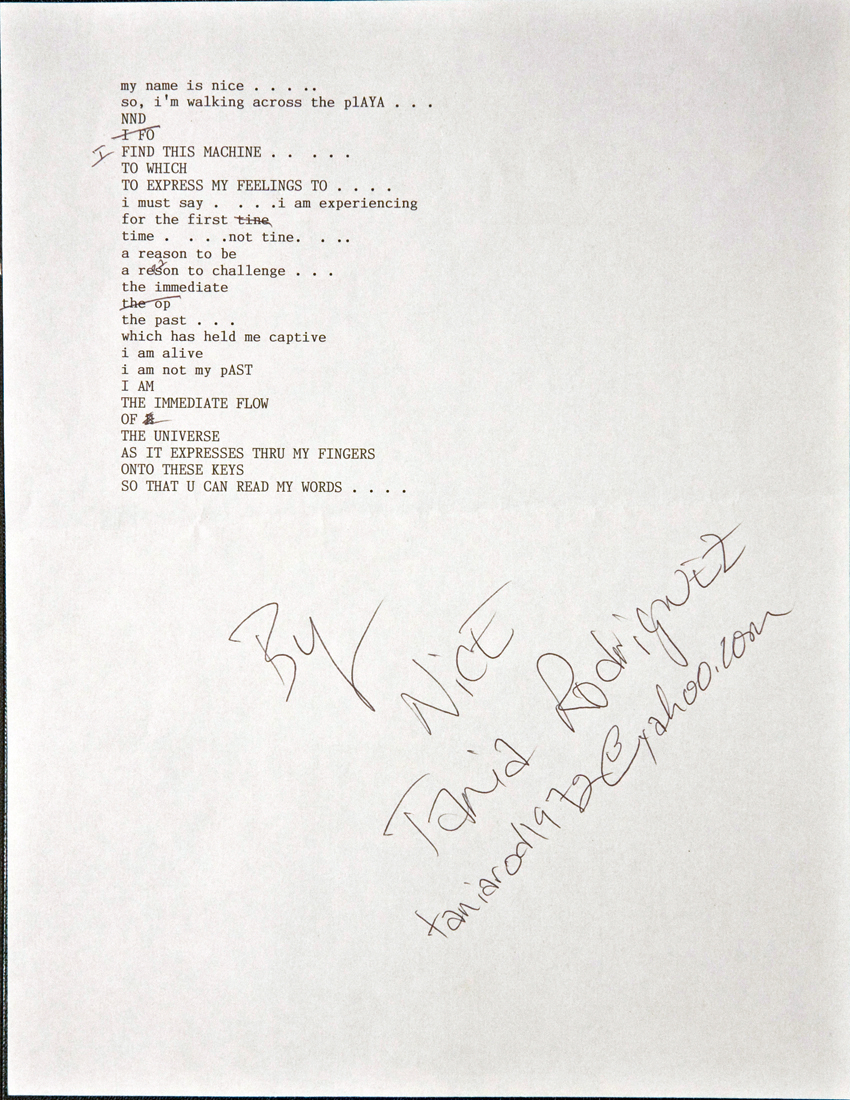 my name is nice . . . . ..
so, i'm walking across the plAYA . . .
NND
I FO
I FIND THIS MACHINE . .  . . .
TO WHICH
TO EXPRESS MY FEELINGS TO . . . .
i must say .  . . .i am experiencing
for the first tine
time .  . . .not tine.  . ..
a reason to be
a reason to challenge . . .
the immediate
the op
the past . . .
which has held me captive
i am alive
i am not my pAST
I AM
THE IMMEDIATE FLOW
OF
THE UNIVERSE
AS IT EXPRESSES THRU MY FINGERS
ONTO THESE KEYS
SO THAT U CAN READ MY WORDS . . . .
By
NiCE
Tania Rodriguez
taniarod1972@yahoo.com